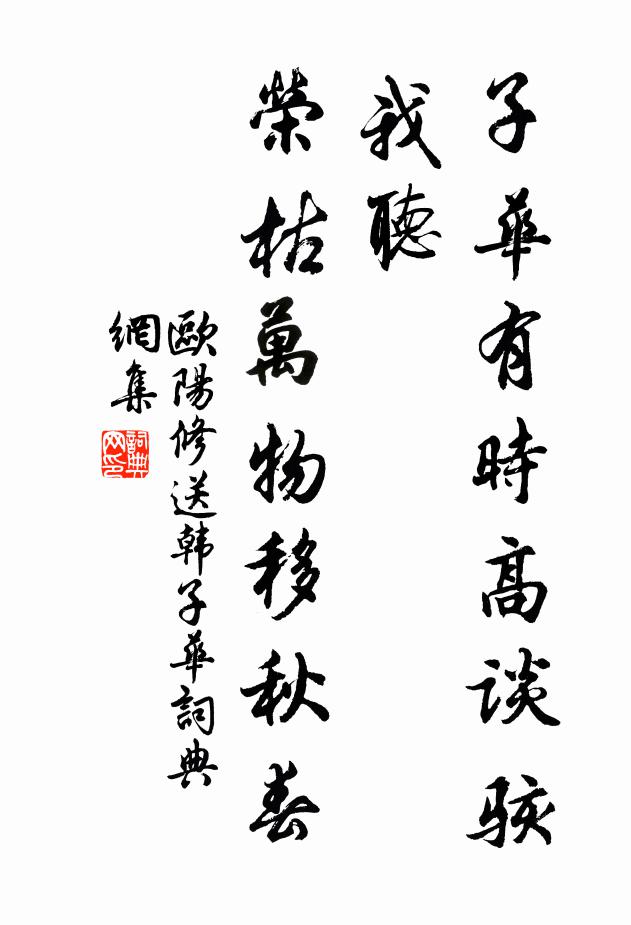 子華有時高談駭
我聽
榮枯萬物移秋春
歐陽修送韩子華詞典
網集
詞典
网印